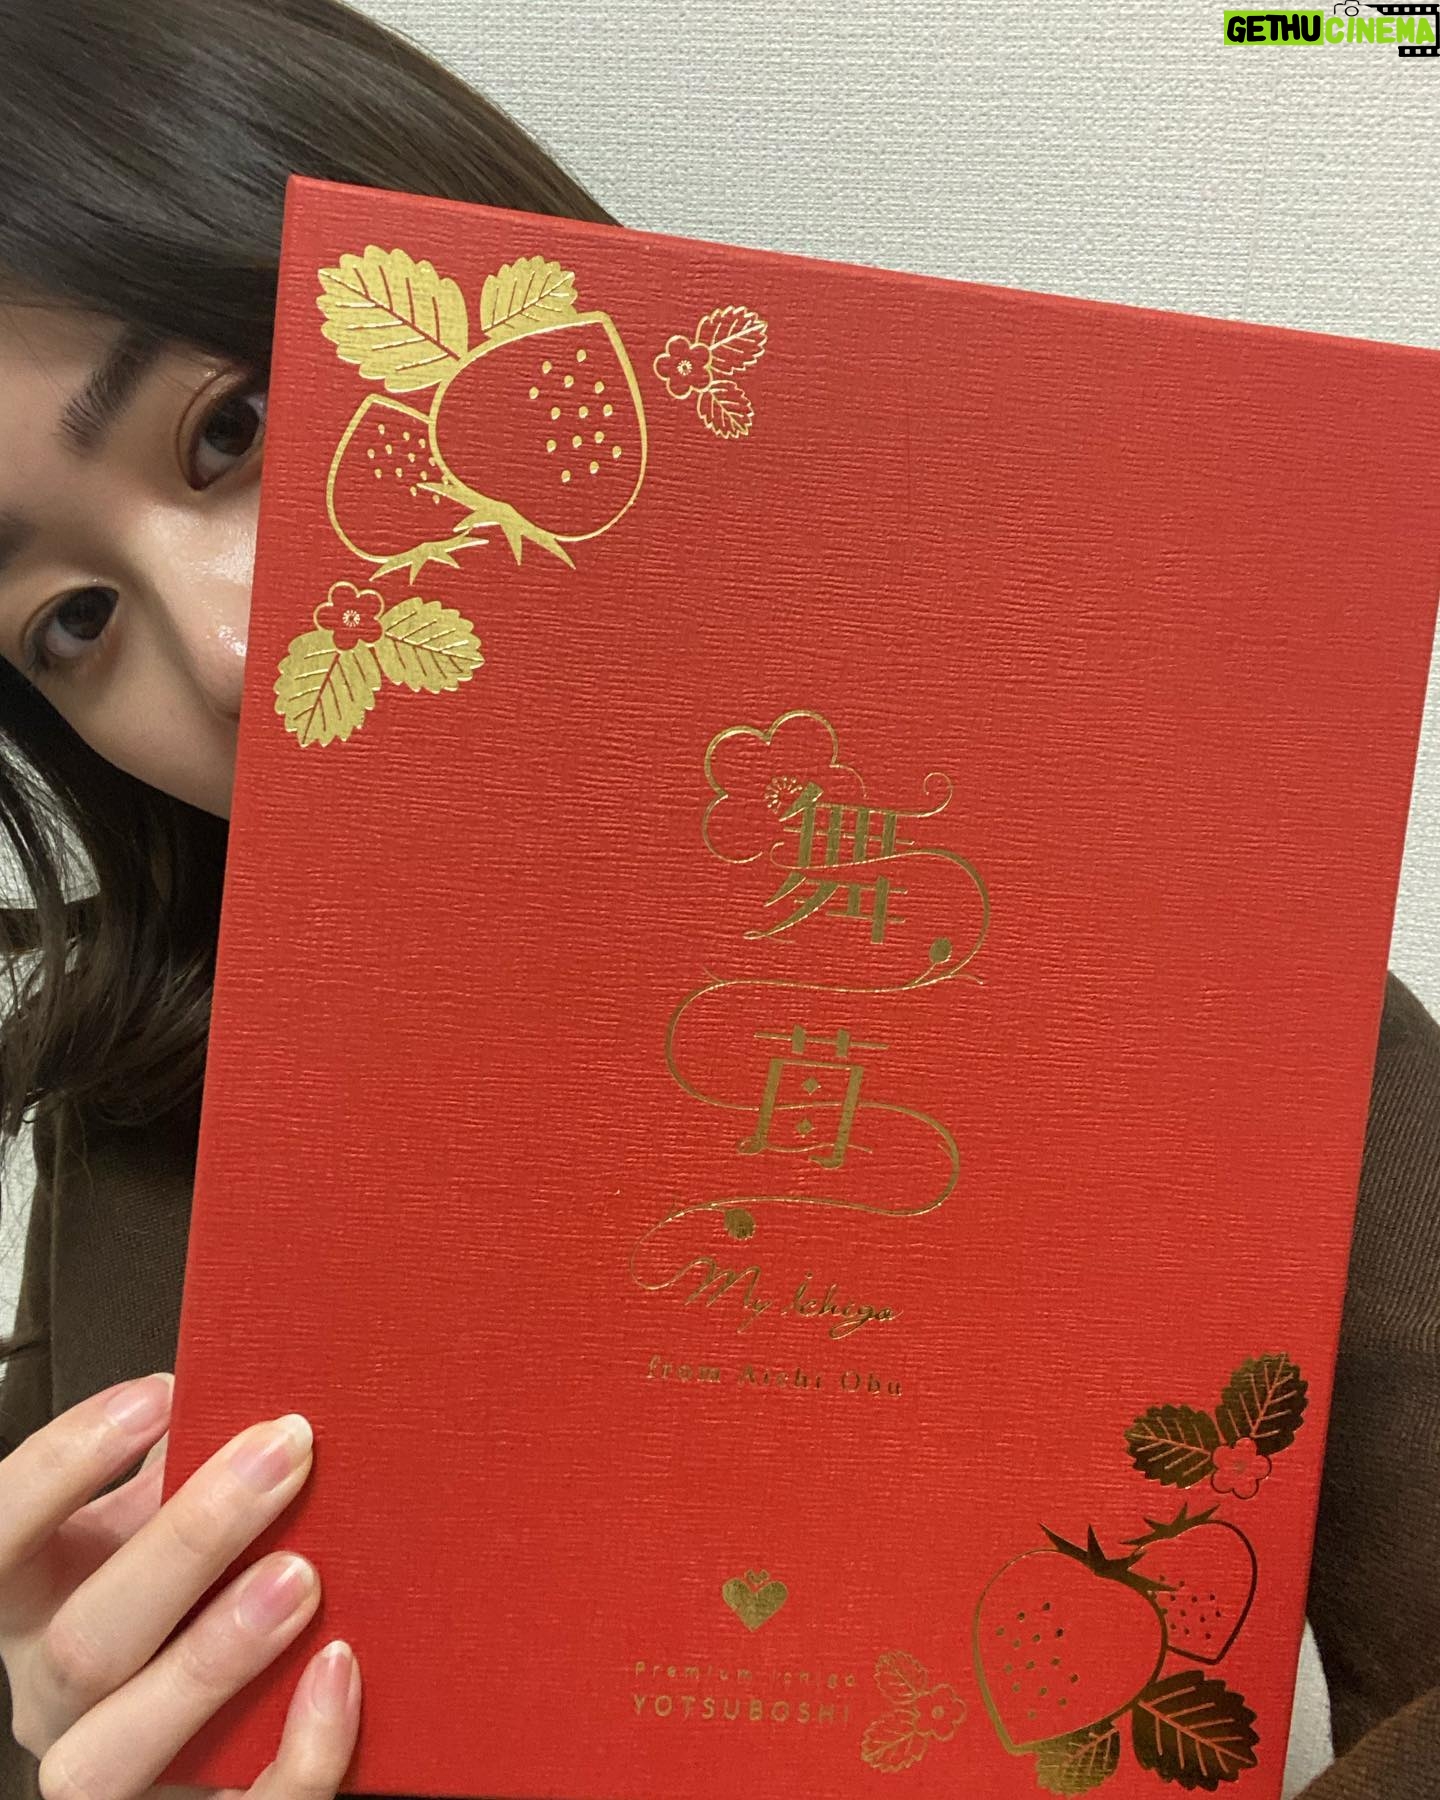 GETHUCINEMA
舞
苺
My Ichigo
from Aichi Obu
Premium ichigo
YOTSUBOSHI